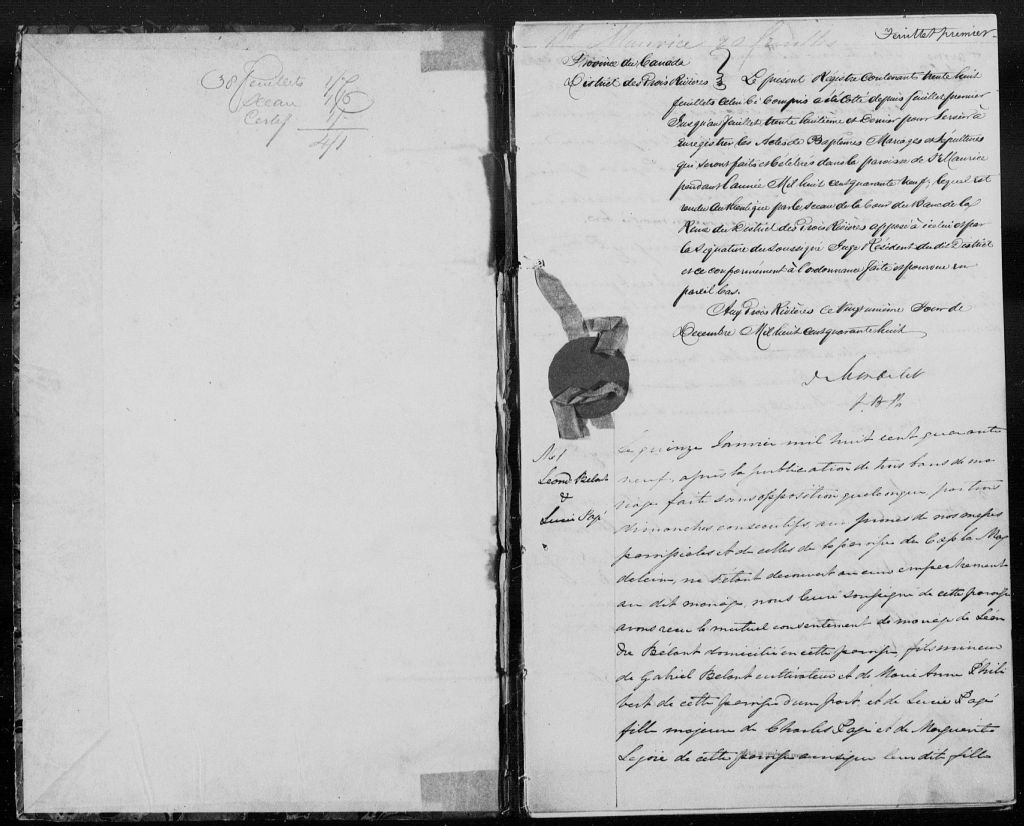 38 feuillets 1/7
Sceau 1/6
Certif 1/
4/1
Feuillet premier
St Maurice 38 feuillets
Province du Canada
District des Trois Rivières
Le présent Régistre Contenant trente huit
feuillets celui ci compris a été Cotté depuis feuillet premier
Jusqu'au feuillet trente huitième et dernier pour Servir à
Enregistrer les Actes de Baptêmes Mariages et sépultures
qui seront faits et Célébrés dans la paroisse de St Maurice
pendant l'année Mil huit cent quarante neuf; lequel est
rendu authentique par le sceau de la Cour du Banc de la
Reine du District des Trois Rivières apposé à icelui et par
la Signature du soussigné Juge Résident du dit District
et ce conformément à l'ordonnance faite et pourvue en
pareil Cas.
Aux Trois Rivières ce vingt unième Jour de
Décembre Mil huit cent quarante huit
D Mondelet
J. B. R.
M 1
Léand Bélant
&
Lucie Pagé
Le quinze Janvier mil huit cent quarante
neuf, après la publication de trois bans de ma
riage faite sans opposition quelconque par trois
dimanches consécutifs aux prones de nos messes
paroissiales et de celles de la paroisse du Cap la Mag
deleine, ne s'étant découvert aucun empêchement
au dit mariage, nous Curé soussigné de cette paroisse
avons reçu le mutuel consentement de mariage de Léan
dre Bélant domicilié en cette paroisse, fils mineur
de Gabriel Bélant cultivateur et de Marie Anne Phili
bert de cette paroisse d'une part, et de Lucie Pagé
fille majeure de Charles Pagé et de Marguerite
Lajoie de cette paroisse ainsi que leur dite fille